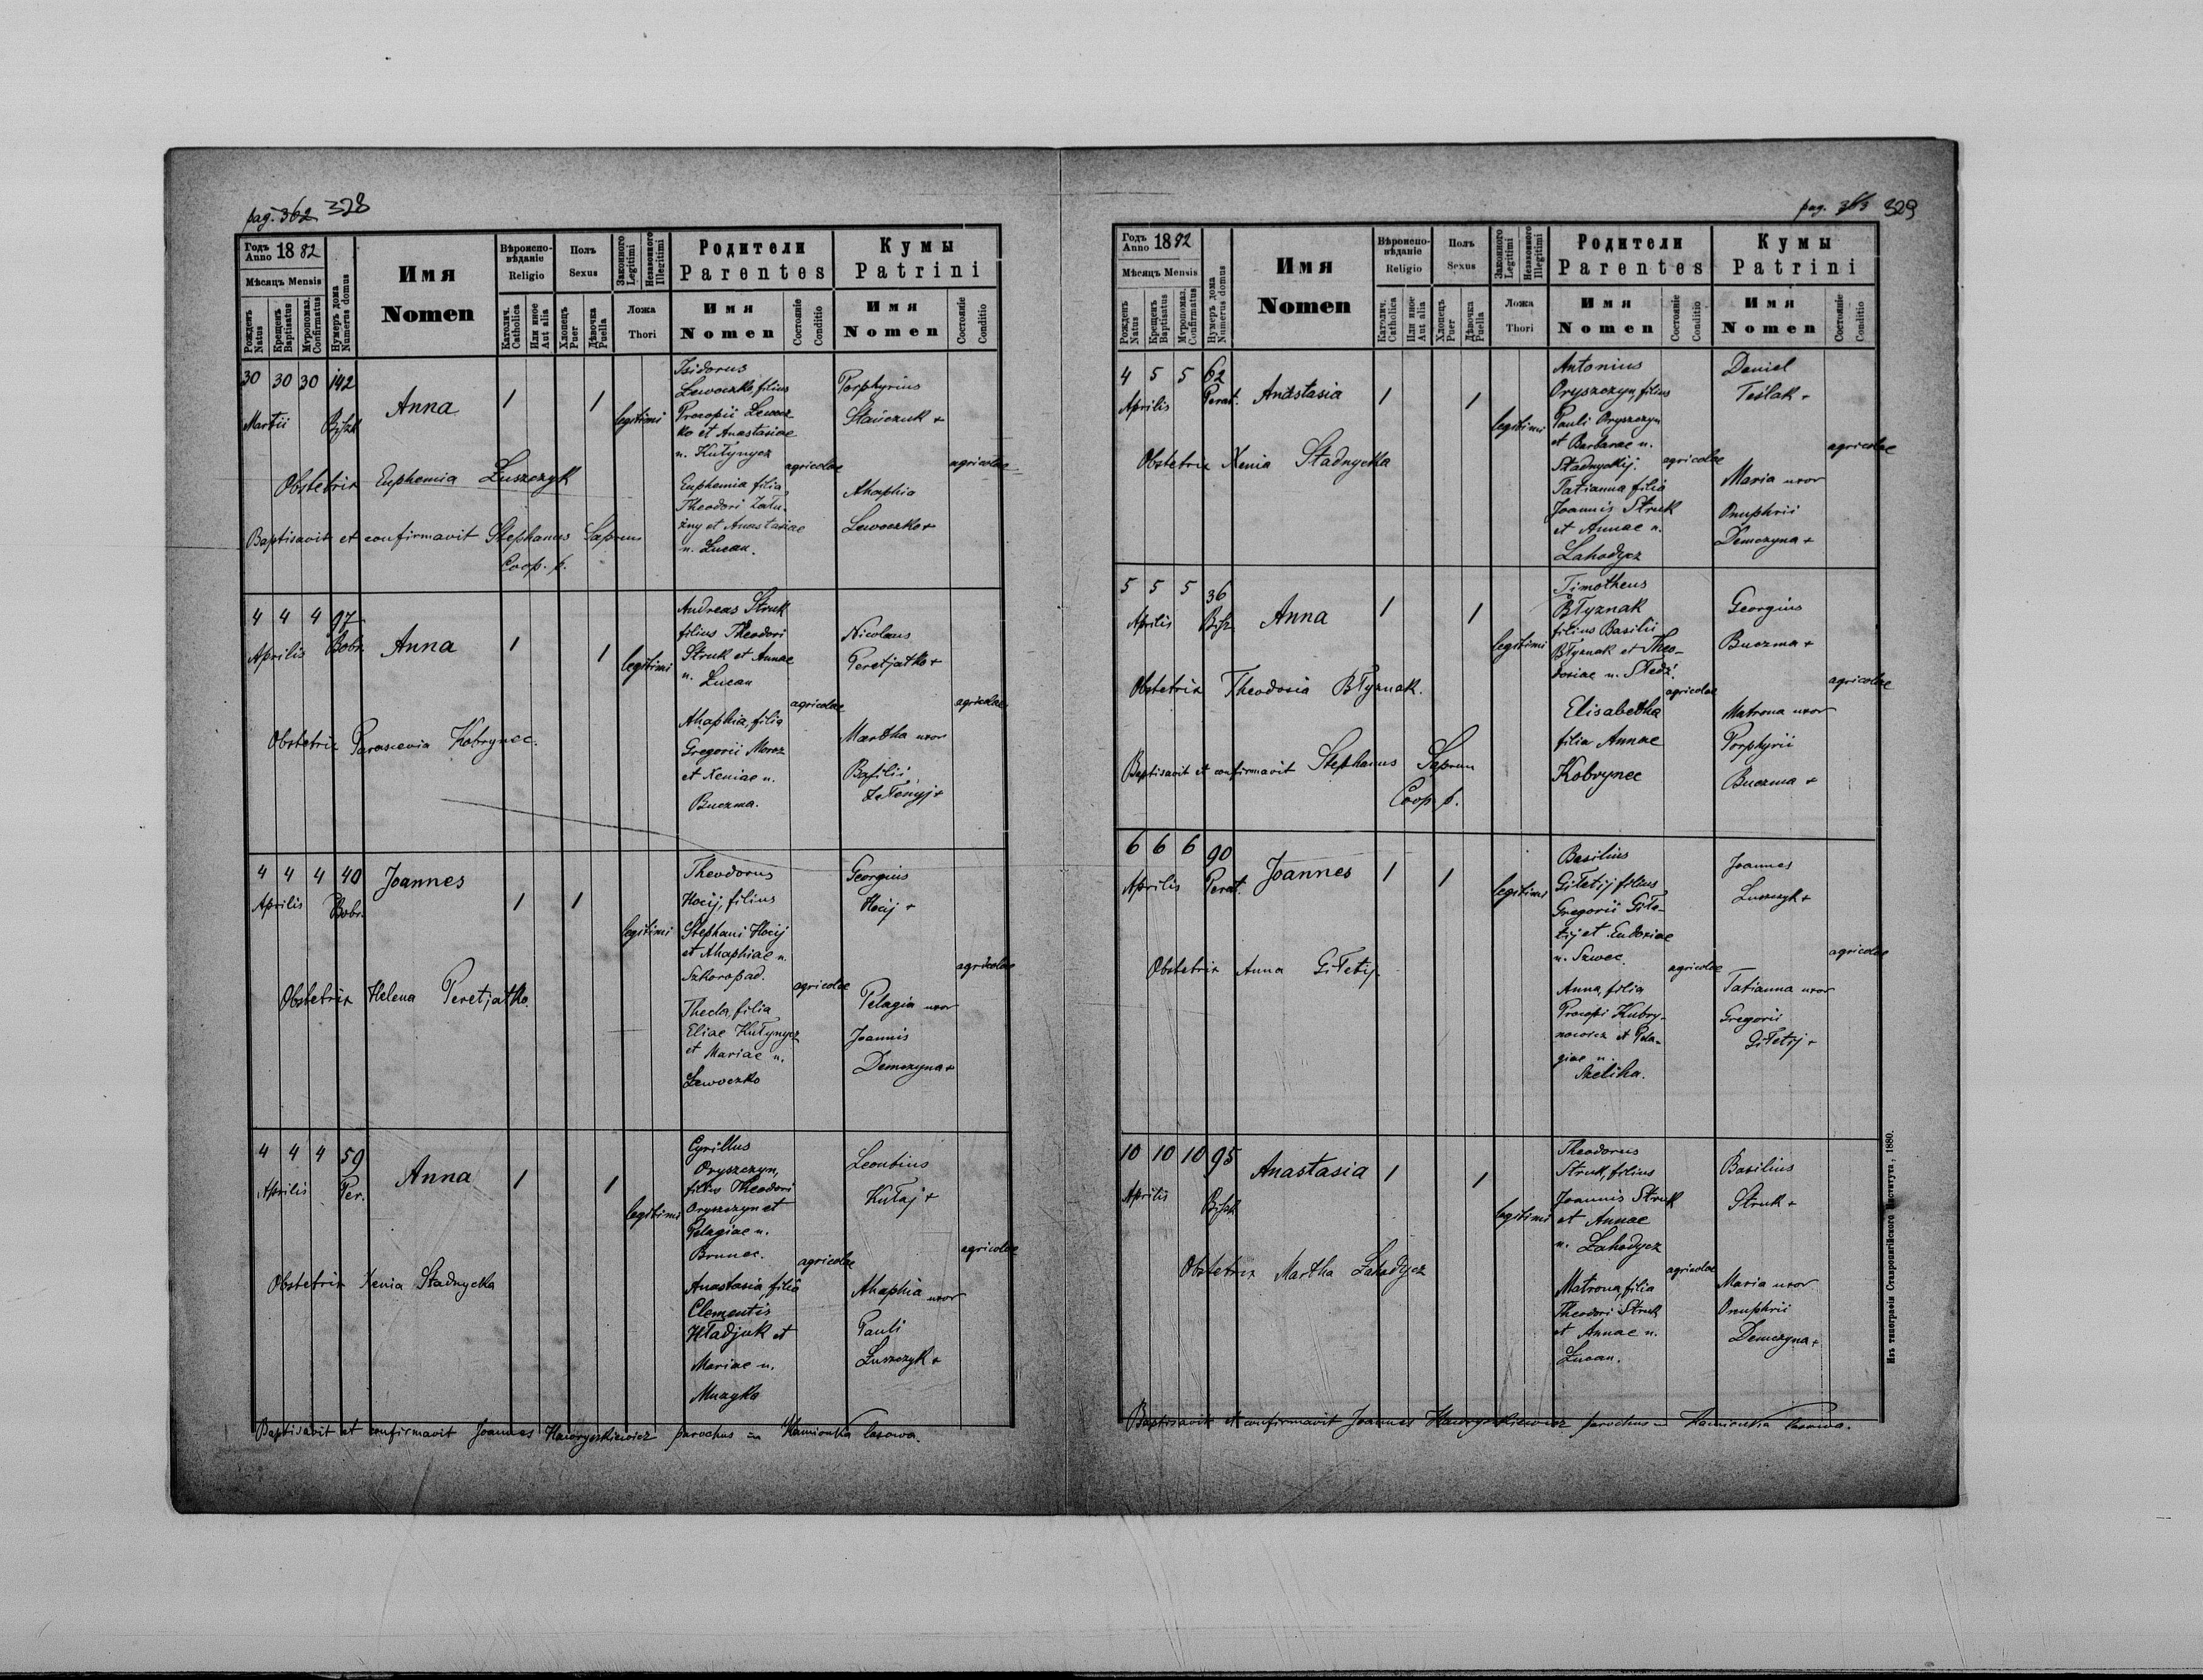 pag. 362 328
Годъ Anno 1882
Мѣсяцъ Mensis
Рожденъ Natus
Крещенъ Baptisatus
Муропомаз. Confirmatus
Нумеръ дома Numerus domus
Имя
Nomen
Вѣроиспо-
вѣданіе
Religio
Католич. Catholica
Или иное Aut alia
Полъ
Sexus
Хлопецъ Puer
Дѣвочка Puella
Законного Legitimi
Незаконного Illegitimi
Ложа
Thori
Родители
Parentes
Имя
Nomen
Состояніе Conditio
Кумы
Patrini
Имя
Nomen
Состояніе Conditio
30 30 30 142
Martii
Anna
1 1
legitimi
Isidorus
Lewoczko, filius
Procopii Lewocz
ko et Anastasiae
n. Kułynycz
agricolae
Euphemia filia
Theodori Zału-
żny et Anastasiae
n. Lucan.
Porphyrius
Stańczuk +
agricolae
Ahaphia
Lewoczko +
Obstetrix Euphemia Łuszczyk
Baptisavit et confirmavit Stephanus Saprun
Coop. p.
4 4 4 97
Aprilis Bobr.
Anna
1 1
legitimi
Andreas Struk
filius Theodori
Struk et Annae
n. Lucan
agricolae
Ahaphia, filia
Gregorii Moroz
et Xeniae n.
Buczma.
Nicolaus
Peretjatko +
agricolae
Martha uxor
Basilii
Załonyj +
Obstetrix Parascevia Kobrynec.
4 4 4 40
Aprilis Bobr.
Joannes
1 1
legitimi
Theodorus
Hocij, filius
Stephani Hocij
et Ahaphiae n.
Szkoropad.
agricolae
Thecla, filia
Eliae Kułynycz
et Mariae n.
Lewoczko
Georgius
Hocij +
agricolae
Pelagia uxor
Joannis
Demczyna +
Obstetrix Helena Peretjatko.
4 4 4 59
Aprilis Per.
Anna
1 1
legitimi
Cyrillus
Oryszczyn,
filius Theodori
Oryszczyn et
Pelagiae n.
Brunec.
agricolae
Anastasia, filia
Clementis
Hładjuk et
Mariae n.
Muzyka
Leontius
Kułaj +
agricolae
Ahaphia uxor
Pauli
Łuszczyk +
Obstetrix Xenia Stadnycka
Baptisavit et confirmavit Joannes Haworyszkiewicz parochus in Kamionka lasowa.
pag. 363 329
Годъ Anno 1882
Мѣсяцъ Mensis
Рожденъ Natus
Крещенъ Baptisatus
Муропомаз. Confirmatus
Нумеръ дома Numerus domus
Имя
Nomen
Вѣроиспо-
вѣданіе
Religio
Католич. Catholica
Или иное Aut alia
Полъ
Sexus
Хлопецъ Puer
Дѣвочка Puella
Законного Legitimi
Незаконного Illegitimi
Ложа
Thori
Родители
Parentes
Имя
Nomen
Состояніе Conditio
Кумы
Patrini
Имя
Nomen
Состояніе Conditio
4 5 5 62
Aprilis Perat.
Anastasia
1 1
legitimi
Antonius
Oryszczyn, filius
Pauli Oryszczyn
et Barbarae n.
Stadnyckij.
agricolae
Tatianna filia
Joannis Struk
et Annae n.
Lahodycz
Daniel
Teślak +
agricolae
Maria uxor
Onuphrii
Demczyna +
Obstetrix Xenia Stadnycka
5 5 5 36
Aprilis
Anna
1 1
legitimi
Timotheus
Błyznak
filius Basilii
Błyznak et Theo-
dosiae n. Sledź.
agricolae
Elisabetha
filia Annae
Kobrynec
Georgius
Buczma +
agricolae
Matrona uxor
Porphyrii
Buczma +
Obstetrix Theodosia Błyznak.
Baptisavit et confirmavit Stephanus Saprun
Coop. p.
6 6 6 90
Aprilis Perat.
Joannes
1 1
legitimi
Basilius
Giłetij filius
Gregorii Giłe-
tij et Eudoxiae
n. Szwec.
agricolae
Anna, filia
Procopi Kobry-
nowicz et Pela-
giae n.
Szeliha.
Joannes
Łuszczyk +
agricolae
Tatianna uxor
Gregorii
Giłetij +
Obstetrix Anna Giłetij
10 10 10 95
Aprilis
Anastasia
1 1
legitimi
Theodorus
Struk, filius
Joannis Struk
et Annae
n. Lahodycz
agricolae
Matrona, filia
Theodori Struk
et Annae n.
Lucan.
Basilius
Struk +
Maria uxor
Onuphrii
Demczyna +
Obstetrix Martha Lahodycz
Baptisavit et confirmavit Joannes Haworyszkiewicz parochus in Kamionka lasowa.
Изъ типографіи Ставропигійского Института, 1880.